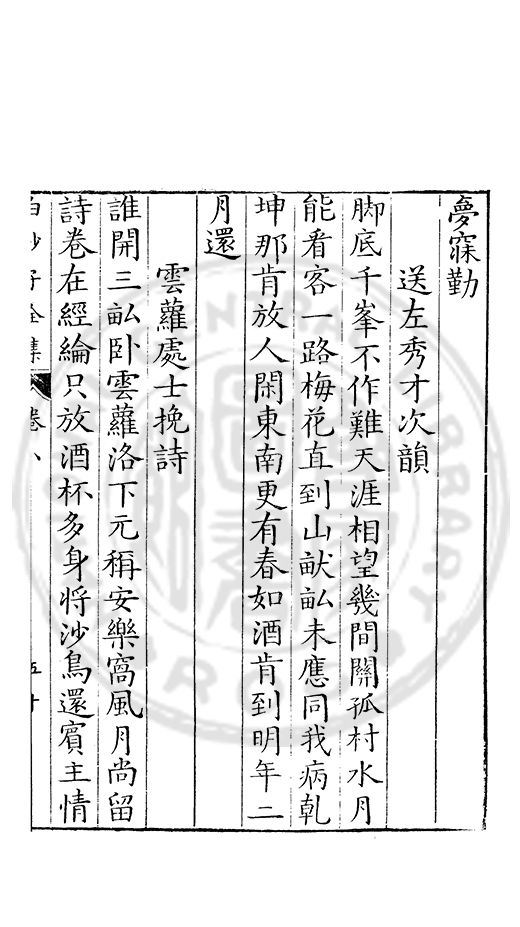 夢寐勤
送左秀才次韻
脚底千峯不作難天涯相望幾間關孤村水月
能看客一路梅花直到山畎畝未應同我病乹
坤那肯放人閑東南更有春如酒肯到明年二
月還
雲蘿處士挽詩
誰開三畝卧雲蘿洛下元稱安樂窩風月尚留
詩卷在經綸只放酒杯多身將沙鳥還賓主情
白沙子全集 卷八 五十